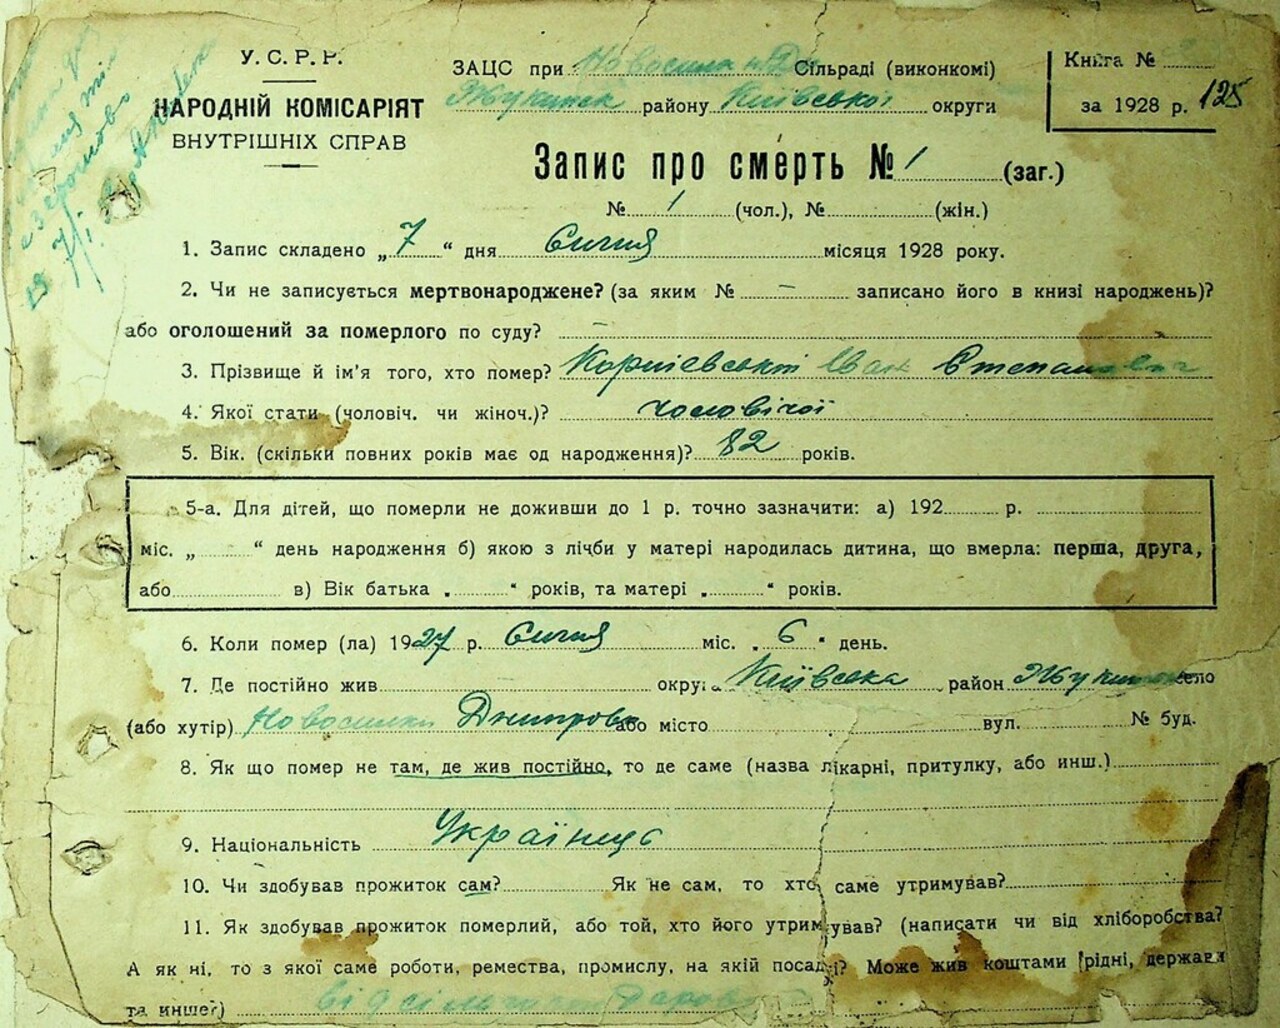 У. С. Р. Р.
НАРОДНІЙ КОМІСАРІЯТ
ВНУТРІШНІХ СПРАВ
ЗАЦС при Сільраді (виконкомі)
Жукинск району Київської округи
Книга №
за 1928 р. 125
Запис про смерть № 1 (заг.)
№ 1 (чол.), № (жін.)
1. Запис складено „ 7 “ дня Січня місяця 1928 року.
2. Чи не записується мертвонароджене? (за яким № — записано його в книзі народжень)?
або оголошений за померлого по суду? —
3. Прізвище й ім'я того, хто помер? Іван Степанович
4. Якої стати (чоловіч. чи жіноч.)? чоловічої
5. Вік. (скільки повних років має од народження)? 82 років.
5-а. Для дітей, що померли не доживши до 1 р. точно зазначити: а) 192 р.
міс. „ “ день народження б) якою з лічби у матері народилась дитина, що вмерла: перша, друга,
або в) Вік батька „ “ років, та матері „ “ років.
6. Коли помер (ла) 1927 р. Січня міс. „ 6 “ день.
7. Де постійно жив округа Київська, район село
(або хутір) Новосілки або місто вул. № буд.
8. Як що помер не там, де жив постійно, то де саме (назва лікарні, притулку, або инш.)
9. Національність Українець
10. Чи здобував прожиток сам? Як не сам, то хто саме утримував?
11. Як здобував прожиток померлий, або той, хто його утримував? (написати чи від хліборобства?
А як ні, то з якої саме роботи, ремества, промислу, на якій посаді? Може жив коштами рідні, держави
та инше?)